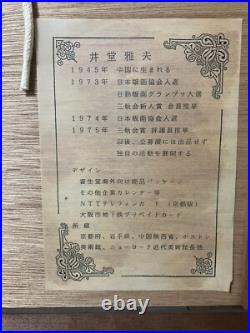 井堂雅夫
1945年 中国に生まれる
1973年 日本版画協会入選
日動版画グランプリ入選
二紀会新人賞 会員推挙
1974年 日本版画協会入選
1975年 三軌会賞 評議員推挙
以後、公募展には出品せず
独自の活動を展開する
デザイン
資生堂海外向け商品パッケージ
その他企業カレンダー等
NTTテレフォンカード(京都版)
大阪市地下鉄プリペイドカード
所蔵
京都府、岩手県、中国陝西省、ボストン
美術館、ニューヨーク近代美術館各法